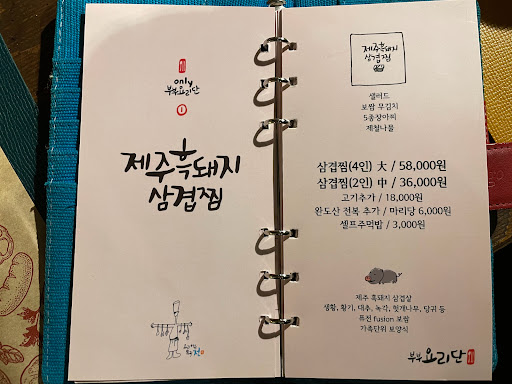 only
부부요리단
제주흑돼지
삼겹찜
제주흑돼지
삼겹찜
샐러드
보쌈 무김치
5종장아찌
제철나물
삼겹찜(4인) 大 / 58,000원
삼겹찜(2인) 中 / 36,000원
고기추가 / 18,000원
완도산 전복 추가 / 마리당 6,000원
셀프주먹밥 / 3,000원
제주 흑돼지 삼겹살
생황, 황기, 대추, 녹각, 헛개나무, 당귀 등
퓨전 fusion 보쌈
가족단위 보양식
부부요리단